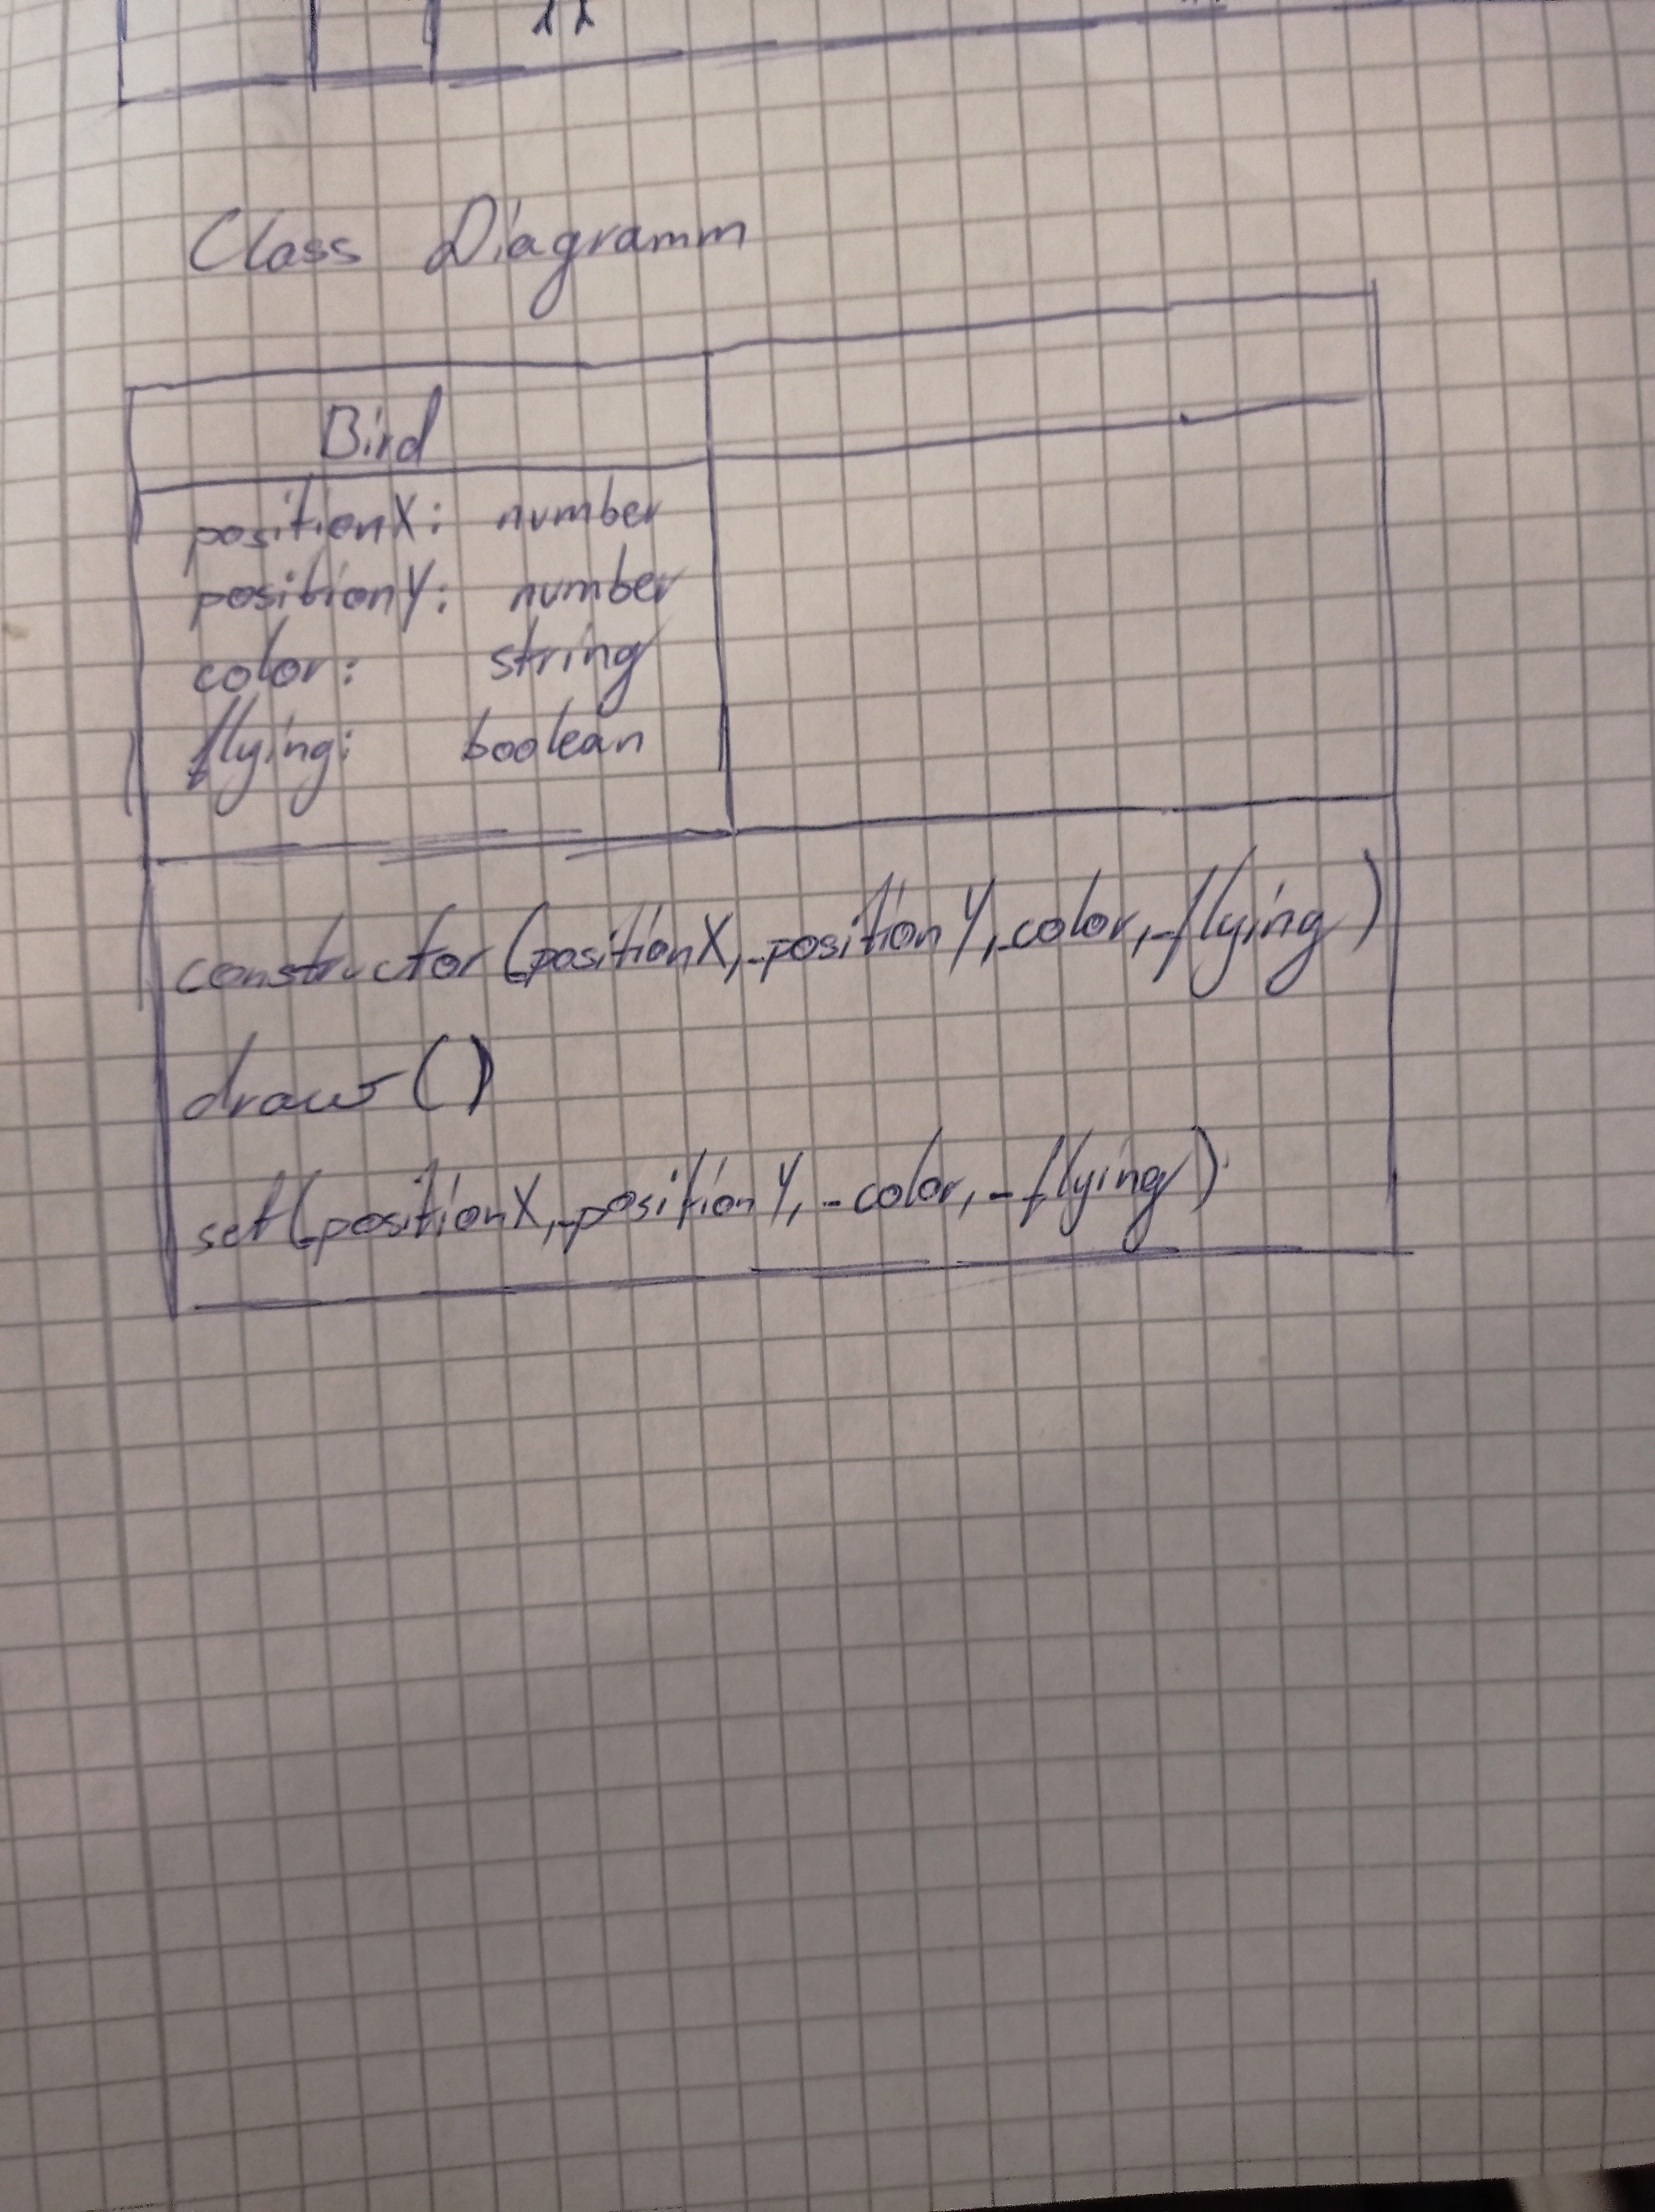 Class Diagramm
Bird
positionX: number
positionY: number
color: string
flying: boolean
constructor(_positionX, _positionY, _color, _flying)
draw()
set(_positionX, _positionY, _color, _flying)